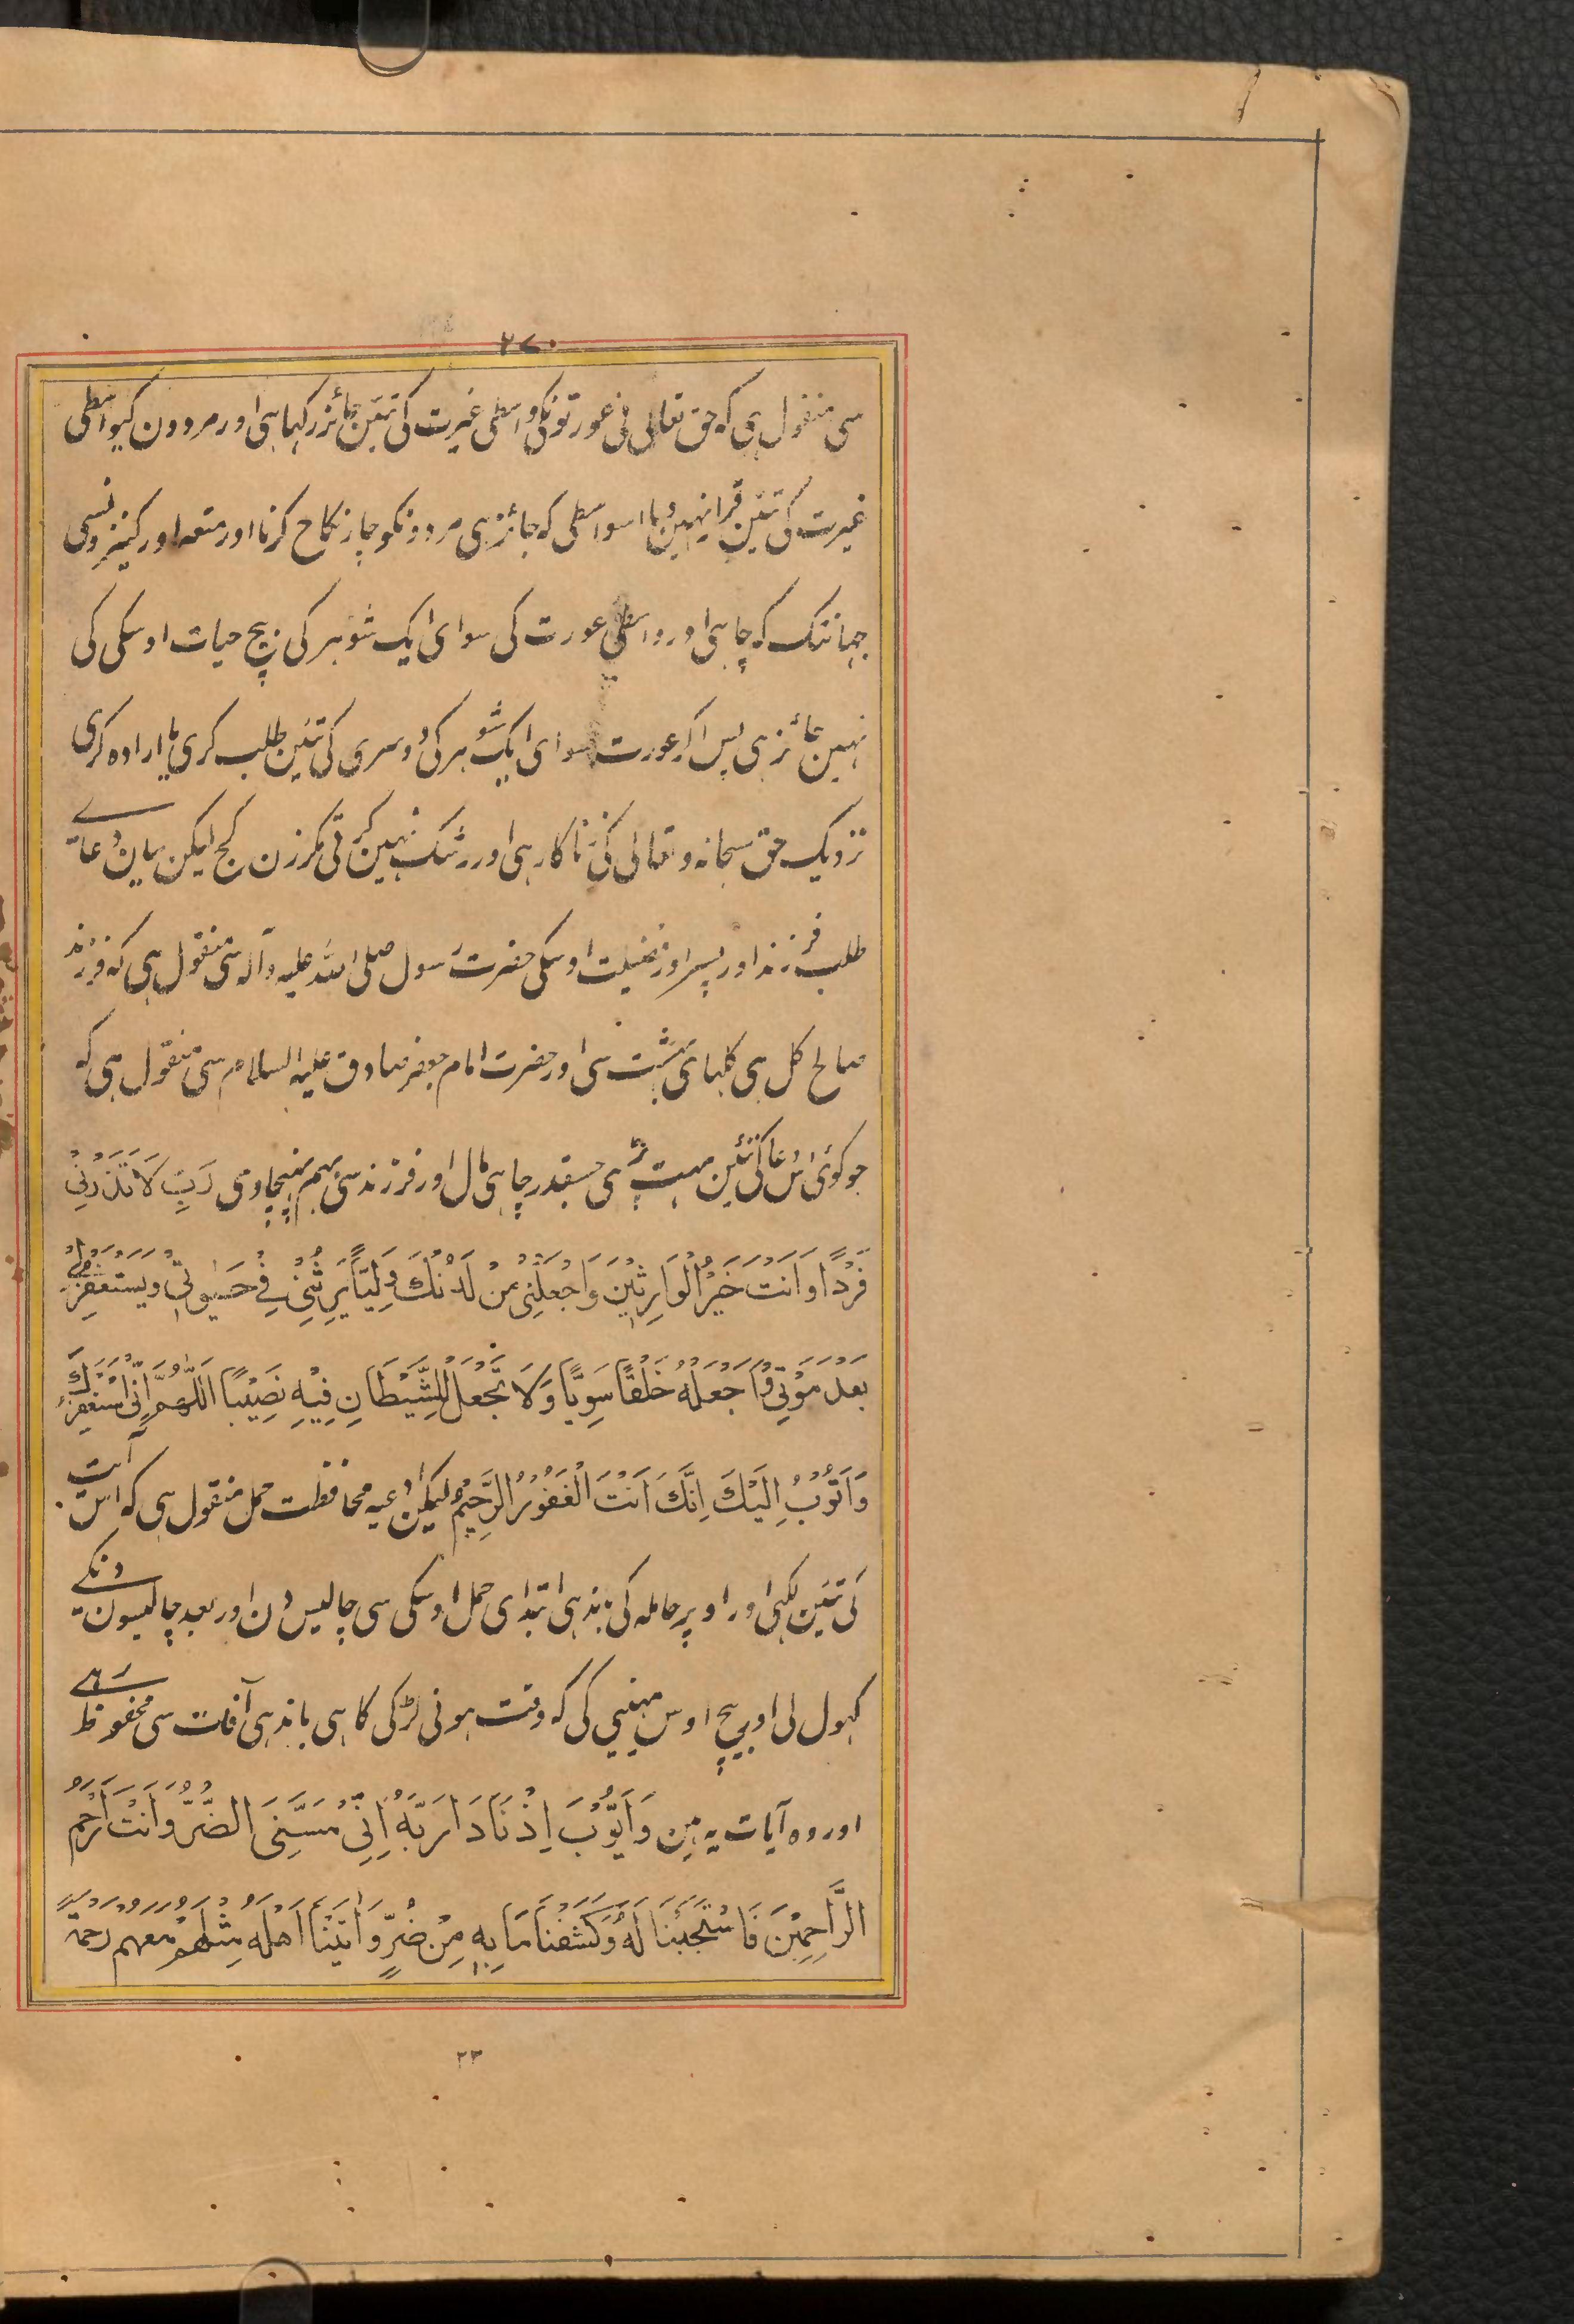 ۲۷۰
سی منقول ہی کہ حق تعالی نی عورتونکی واسطی غیرت کی تئین جائز رکہا ہی اور مردون کیواسطی
غیرت کی تئین قرار نہین دیا اسواسطی کہ جائز ہی مردونکو چار نکاح کرنا اور متعہ اور کنیزونسی
جہانتک کہ چاہی اور واسطی عورت کی سوای ایک شوہر کی بیچ حیات اوسکی کی
نہین جائز ہی پس اگر عورت سوای ایک شوہر کی دوسری کی تئین طلب کری یا ارادہ کری
نزدیک حق سبحانہ و تعالی کی زناکار ہی اور رشک نہین کرتی مگر زن کج لیکن بیان دعای
طلب فرزند اور پسر اور فضیلت اوسکی حضرت رسول صلی اللہ علیہ وآلہ سی منقول ہی کہ فرزند
صالح گل ہی گلہای بہشت سی اور حضرت امام جعفر صادق علیہ السلام سی منقول ہی کہ
جو کوئی اس دعا کی تئین بہت پڑہی جسقدر چاہی مال اور فرزند سی بہم پہنچاوی رَبِّ لَا تَذَرْنِیْ
فَرْدًا وَاَنْتَ خَیْرُ الْوَارِثِیْنَ وَاجْعَلْنِیْ مِنْ لَدُنْكَ وَلِیًّا یَرِثُنِیْ فِیْ حَیٰوتِیْ وَیَسْتَغْفِرُلِیْ
بَعْدَ مَوْتِیْ وَاجْعَلْهُ خَلْقًا سَوِیًّا وَلَا تَجْعَلْ لِلشَّیْطَانِ فِیْهِ نَصِیْبًا اَللّٰهُمَّ اِنِّیْ اَسْتَغْفِرُكَ
وَاَتُوْبُ اِلَیْكَ اِنَّكَ اَنْتَ الْغَفُوْرُ الرَّحِیْمُ لیکن ادعیہ محافظت حمل منقول ہی کہ اس آیت
کی تئین لکہی اور اوپر حاملہ کی باندہی ابتدای حمل اوسکی سی چالیس دن اور بعد چالیسون دنکے
کہول لی اور بیچ اوس مہینی کی کہ وقت ہونی لڑکی کا ہی باندہی آفات سی محفوظ رہے
اور وہ آیات یہ ہین وَاَیُّوْبَ اِذْ نَادَا رَبَّهٗ اَنِّیْ مَسَّنِیَ الضُّرُّ وَاَنْتَ اَرْحَمُ
الرَّاحِمِیْنَ فَاسْتَجَبْنَا لَهٗ وَكَشَفْنَا مَا بِهٖ مِنْ ضُرٍّ وَاٰتَیْنَا اَهْلَهٗ مِثْلَهُمْ مَعَهُمْ رَحْمَةً
۲۳